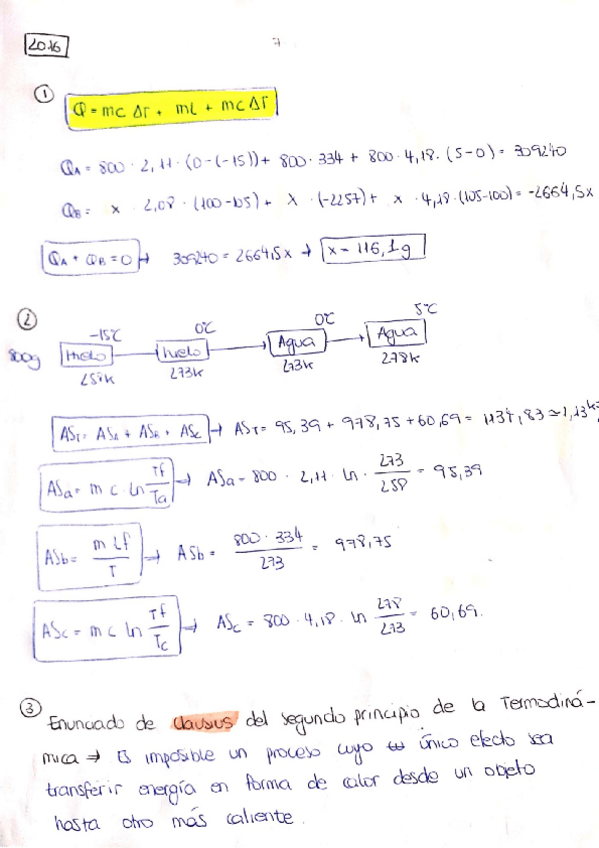 2016
7
① Q = mc ΔT + mL + mc ΔT
QA = 800 · 2,11 · (0-(-15)) + 800 · 334 + 800 · 4,18 · (5-0) = 309240
QB = x · 2,08 · (100-105) + x · (-2257) + x · 4,18 · (105-100) = -2664,5x
QA + QB = 0 → 309240 = 2664,5x → x = 116,1g
②
-15℃ 0℃ 0℃ 5℃
800g Hielo → hielo → Agua → Agua
258k 273k 273k 278k
ΔST = ΔSa + ΔSb + ΔSc → ΔST = 95,39 + 978,75 + 60,69 = 1134,83 ≃ 1,13
ΔSa = m c · ln Tf/Ta → ΔSa = 800 · 2,11 · ln · 273/258 = 95,39
ΔSb = m Lf/T → ΔSb = 800 · 334/273 = 978,75
ΔSc = m c ln Tf/Tc → ΔSc = 800 · 4,18 · ln 278/273 = 60,69.
③ Enunciado de Clausius del segundo principio de la Termodiná-
mica → Es imposible un proceso cuyo único efecto sea
transferir energía en forma de calor desde un objeto
hasta otro más caliente.